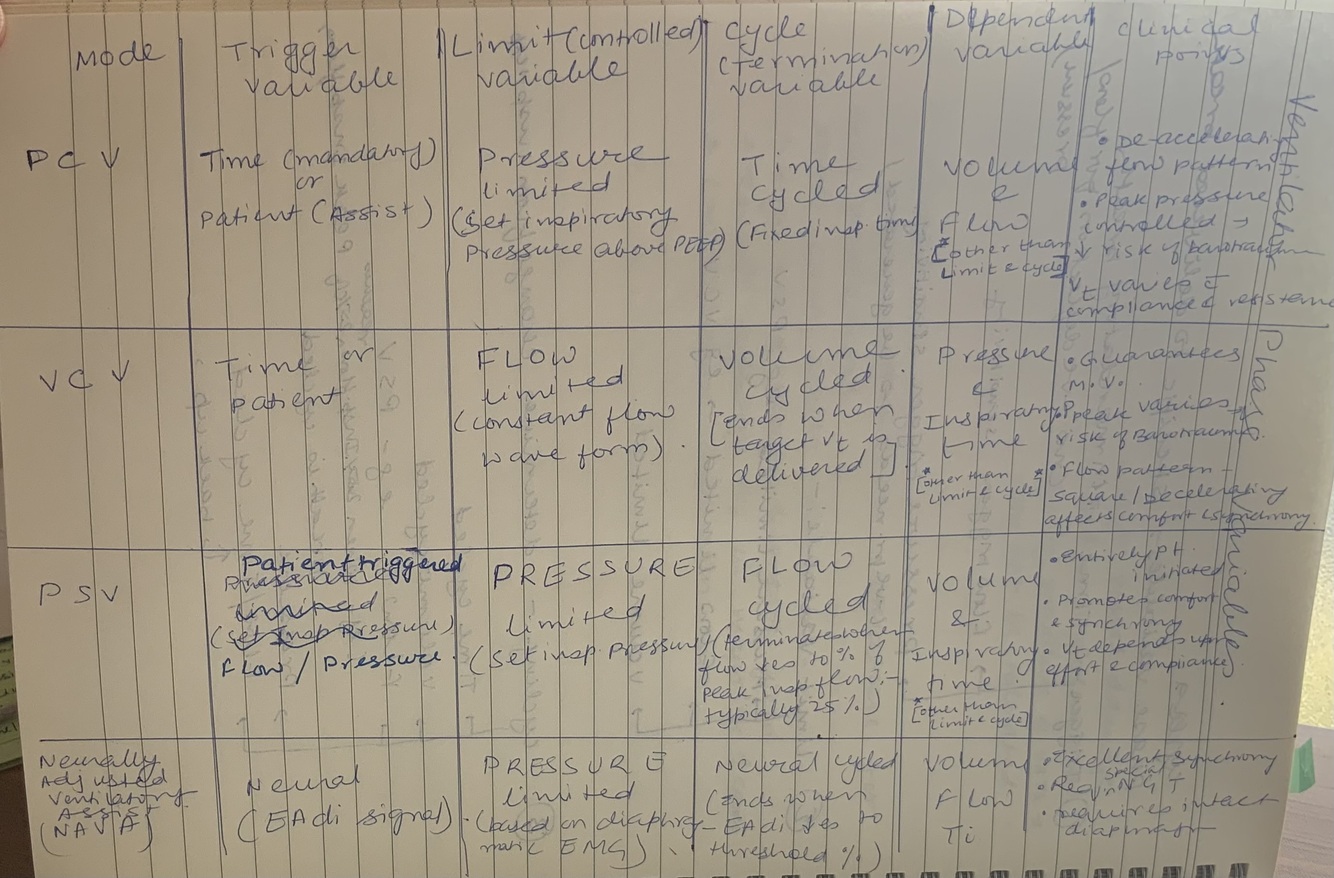 Mode
Trigger
Variable
Limit (controlled)
variable
Cycle
(termination)
variable
Dependent
variable
clinical
points
Ventilator Phase Variables
PCV
Time (mandatory)
or
Patient (Assist)
Pressure
limited
(set inspiratory
pressure above PEEP)
Time
cycled
(Fixed insp. time)
Volume
&
Flow
[*other than
limit & cycle]
• De-accelerating
flow pattern
• Peak pressure
controlled →
↓ risk of Barotrauma
Vt varies c̄
compliance & resistance
VCV
Time or
Patient
FLOW
limited
(constant flow
wave form).
Volume
cycled.
[Ends when
target Vt is
delivered].
Pressure
&
Inspiratory
time
[*other than
limit & cycle]*
• Guarantees
M.V.
• Ppeak varies →
risk of Barotrauma.
• Flow pattern –
square/Decelerating
affects comfort & synchrony.
PSV
Patient triggered
Pressure
limited
(set insp Pressure)
Flow / Pressure.
PRESSURE
limited
(set insp. pressure)
FLOW
cycled
(terminates when
flow ↓es to % of
Peak insp flow;-
typically 25%)
Volume
&
Inspiratory
time
[*other than
limit & cycle]
• Entirely Pt.
initiated
• Promotes comfort
& synchrony
• Vt depends upon
effort & compliance
Neurally
Adjusted
Ventilatory
Assist
(NAVA)
Neural
(EAdi signal)
PRESSURE
limited
(based on diaphrag-
matic EMG)
Neural cycled
(Ends when
EAdi ↓es to
threshold %)
Volume
Flow
Ti
• Excellent synchrony
special
NGT
• requires intact
diaphragm